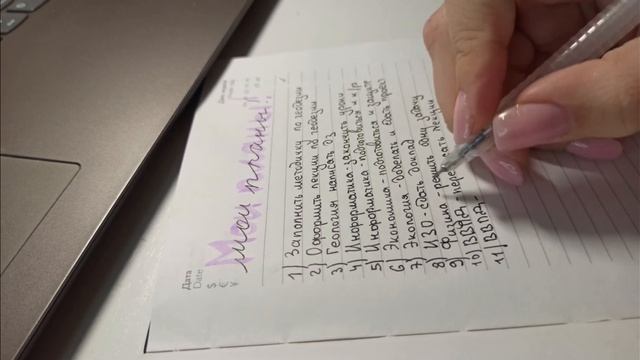 Дата
Date
$
€
¥
Мои планы
1) Заполнить методичку по геодезии
2) Оформить лекции по геодезии
3) Геология написать дз
4) Информатика-закончить уроки
5) Информатика-подготовиться к к/р
6) Экономика-подготовиться и защите
7) Экология-доделать и сдать проект
8) ИЗО-сдать доклад
9) Физика-решить одну задачу
10) ВВПД- лекции
11) ВВПД-